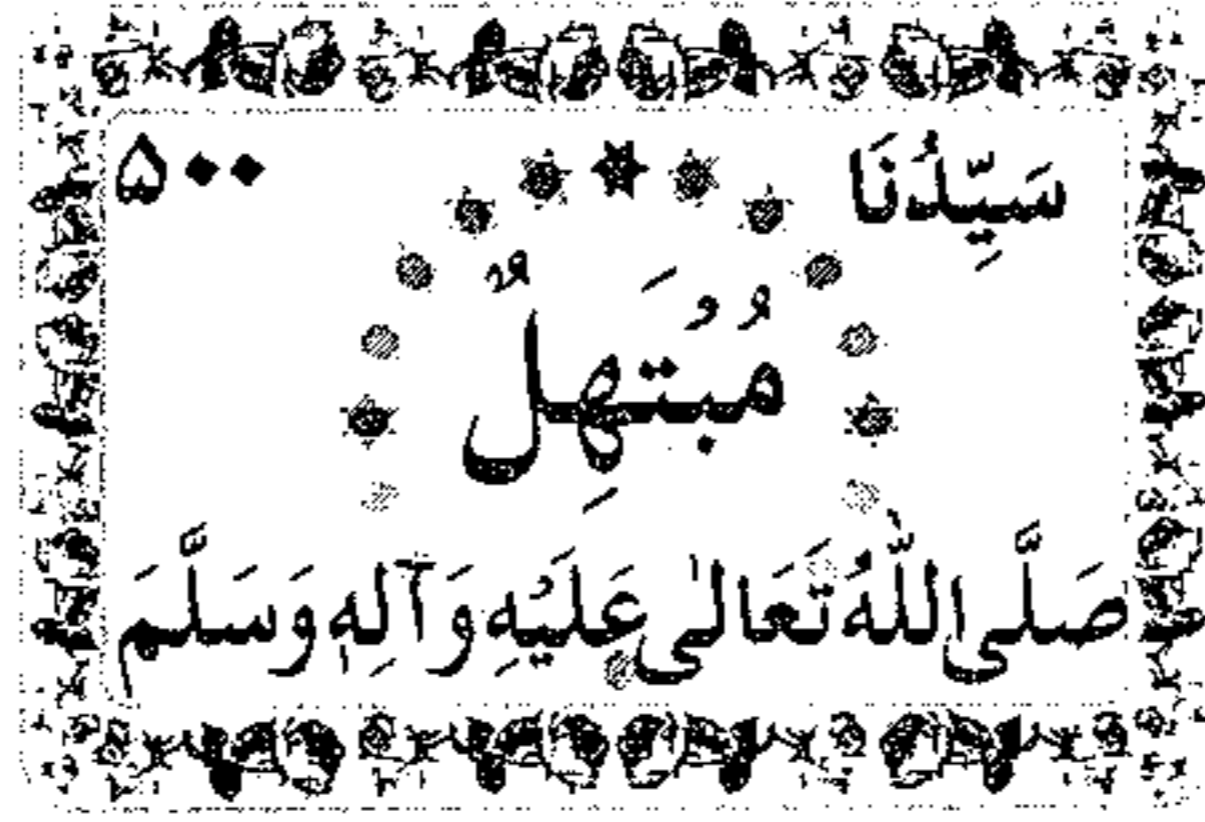 سَيِّدُنَا ۵۰۰
مُبْتَهِلٌ
صَلَّی اللّٰهُ تَعَالٰی عَلَيْهِ وَآلِهٖ وَسَلَّمَ